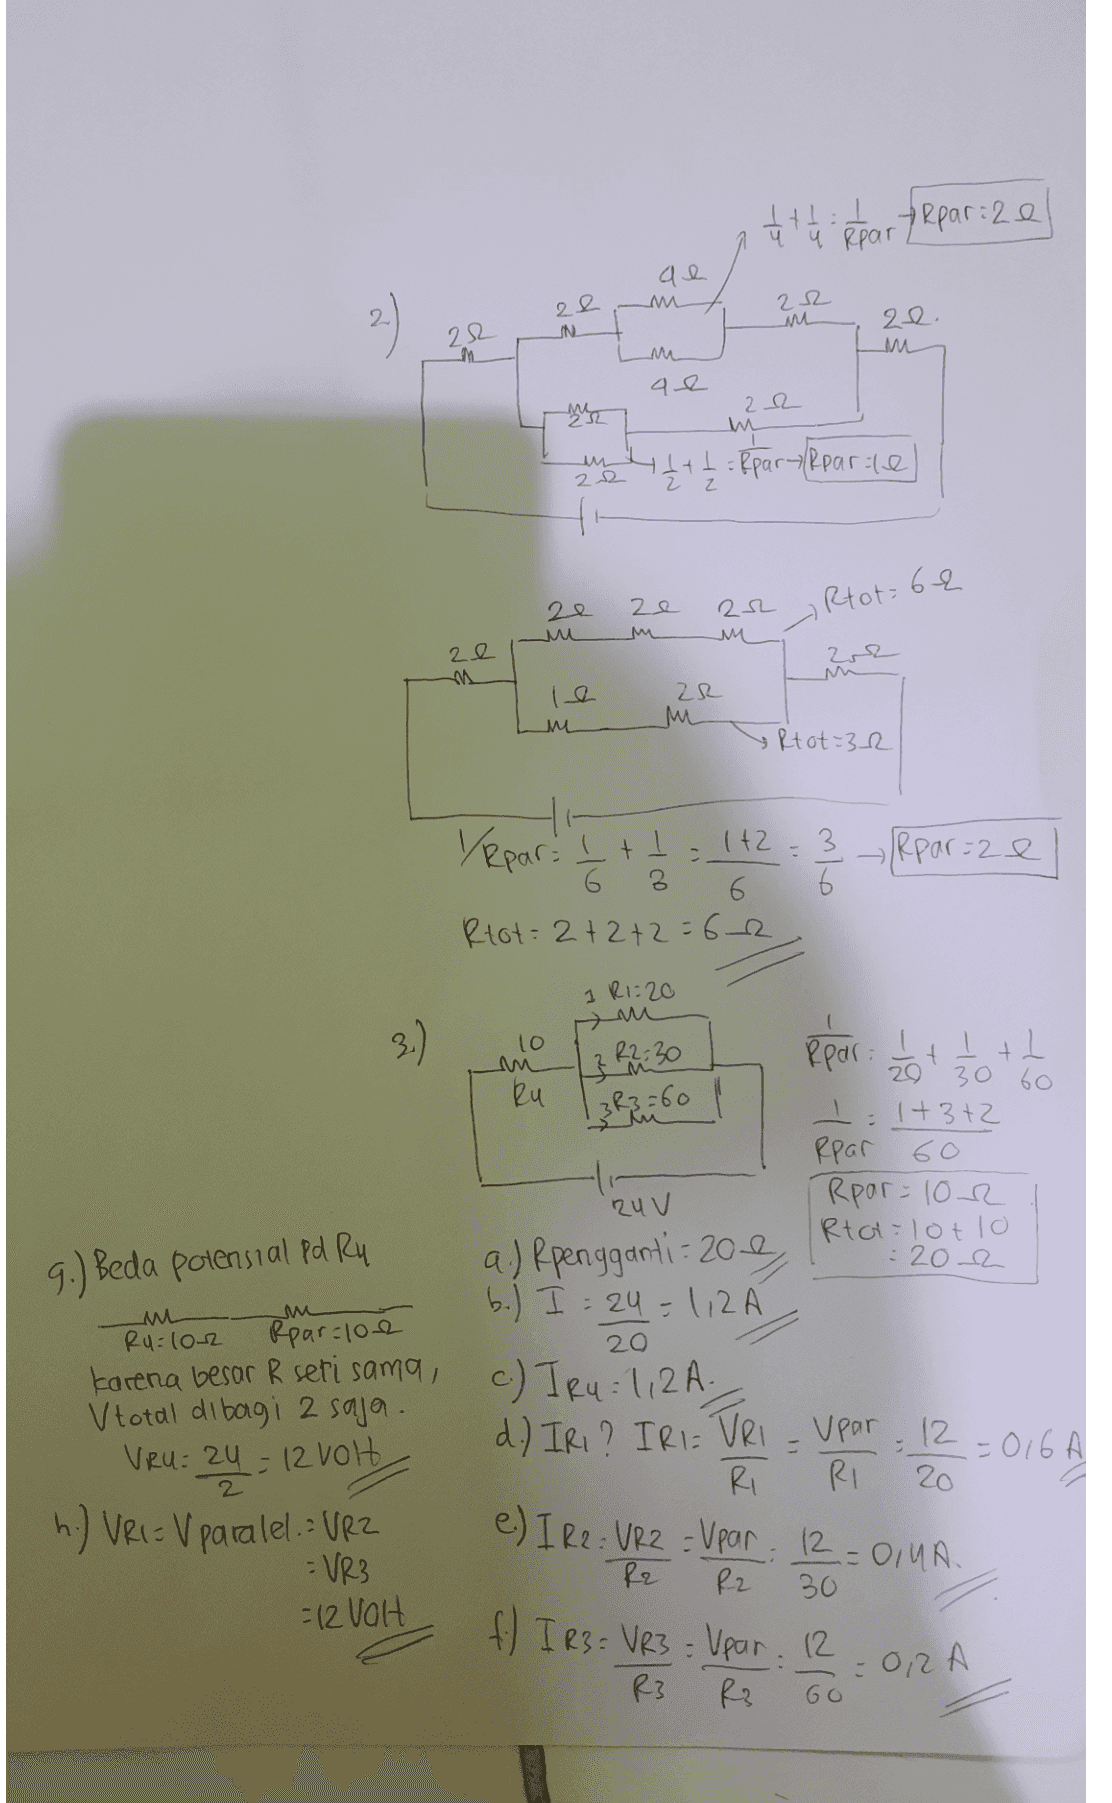 2)
1/4 + 1/4 = 1/Rpar → Rpar = 2 Ω
2Ω 2Ω 4Ω 2Ω 2Ω.
4Ω
2Ω 2Ω
2Ω → 1/2 + 1/2 = 1/Rpar → Rpar = 1Ω
2Ω 2Ω 2Ω → Rtot = 6Ω
2Ω 2Ω
1Ω 2Ω
→ Rtot = 3Ω
1/Rpar = 1/6 + 1/3 = 1+2/6 = 3/6 → Rpar = 2Ω
Rtot = 2 + 2 + 2 = 6Ω
3.)
1 R1 = 20
10 2 R2 = 30
R4 3 R3 = 60
24 V
1/Rpar = 1/20 + 1/30 + 1/60
1/Rpar = 1+3+2/60
Rpar = 10Ω
Rtot = 10 + 10
= 20Ω
a.) Rpengganti = 20Ω
b.) I = 24/20 = 1,2 A
c.) IR4 = 1,2 A.
d.) IR1? IR1 = VR1/R1 = Vpar/R1 = 12/20 = 0,6 A
e.) IR2 = VR2/R2 = Vpar/R2 = 12/30 = 0,4 A.
f.) IR3 = VR3/R3 = Vpar/R3 = 12/60 = 0,2 A
g.) Beda potensial pd R4
R4 = 10Ω Rpar = 10Ω
karena besar R seri sama,
Vtotal dibagi 2 saja.
VR4 = 24/2 = 12 Volt
h.) VR1 = Vparalel. = VR2
= VR3
= 12 Volt